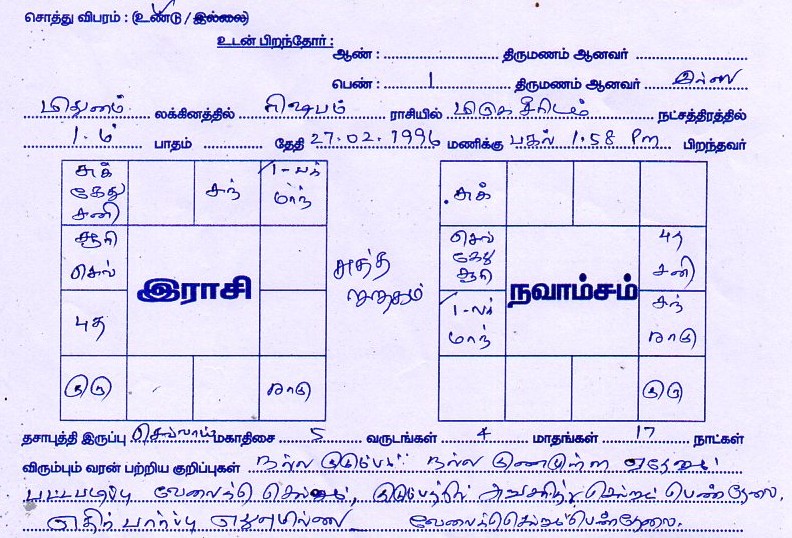 சொத்து விபரம் : (உண்டு / இல்லை)
உடன் பிறந்தோர் :
ஆண் : திருமணம் ஆனவர்
பெண் : 1 திருமணம் ஆனவர் இல்லை
மிதுனம் லக்கினத்தில் ரிஷபம் ராசியில் மிருகசீரிடம் நட்சத்திரத்தில்
1-ம் பாதம் தேதி 27.02.1996 மணிக்கு பகல் 1.58 Pm பிறந்தவர்
சுக் கேது சனி
சந்
1-லக் மாந்
சூரி செவ்
புத
குரு
ராகு
இராசி
சுத்த ஜாதகம்
சுக்
செவ் கேது சூரி
1-லக் மாந்
புத சனி
சந் ராகு
குரு
நவாம்சம்
தசாபுத்தி இருப்பு செவ்வாய் மகாதிசை 5 வருடங்கள் 4 மாதங்கள் 17 நாட்கள்
விரும்பும் வரன் பற்றிய குறிப்புகள் நல்ல குடும்பம் நல்ல குணமுள்ள
பட்டபடிப்பு வேலைக்கு குடும்பத்தில் பெண் தேவை.
எதிர் பார்ப்பு எதுவுமில்லை வேலைக்கு பெண் தேவை.